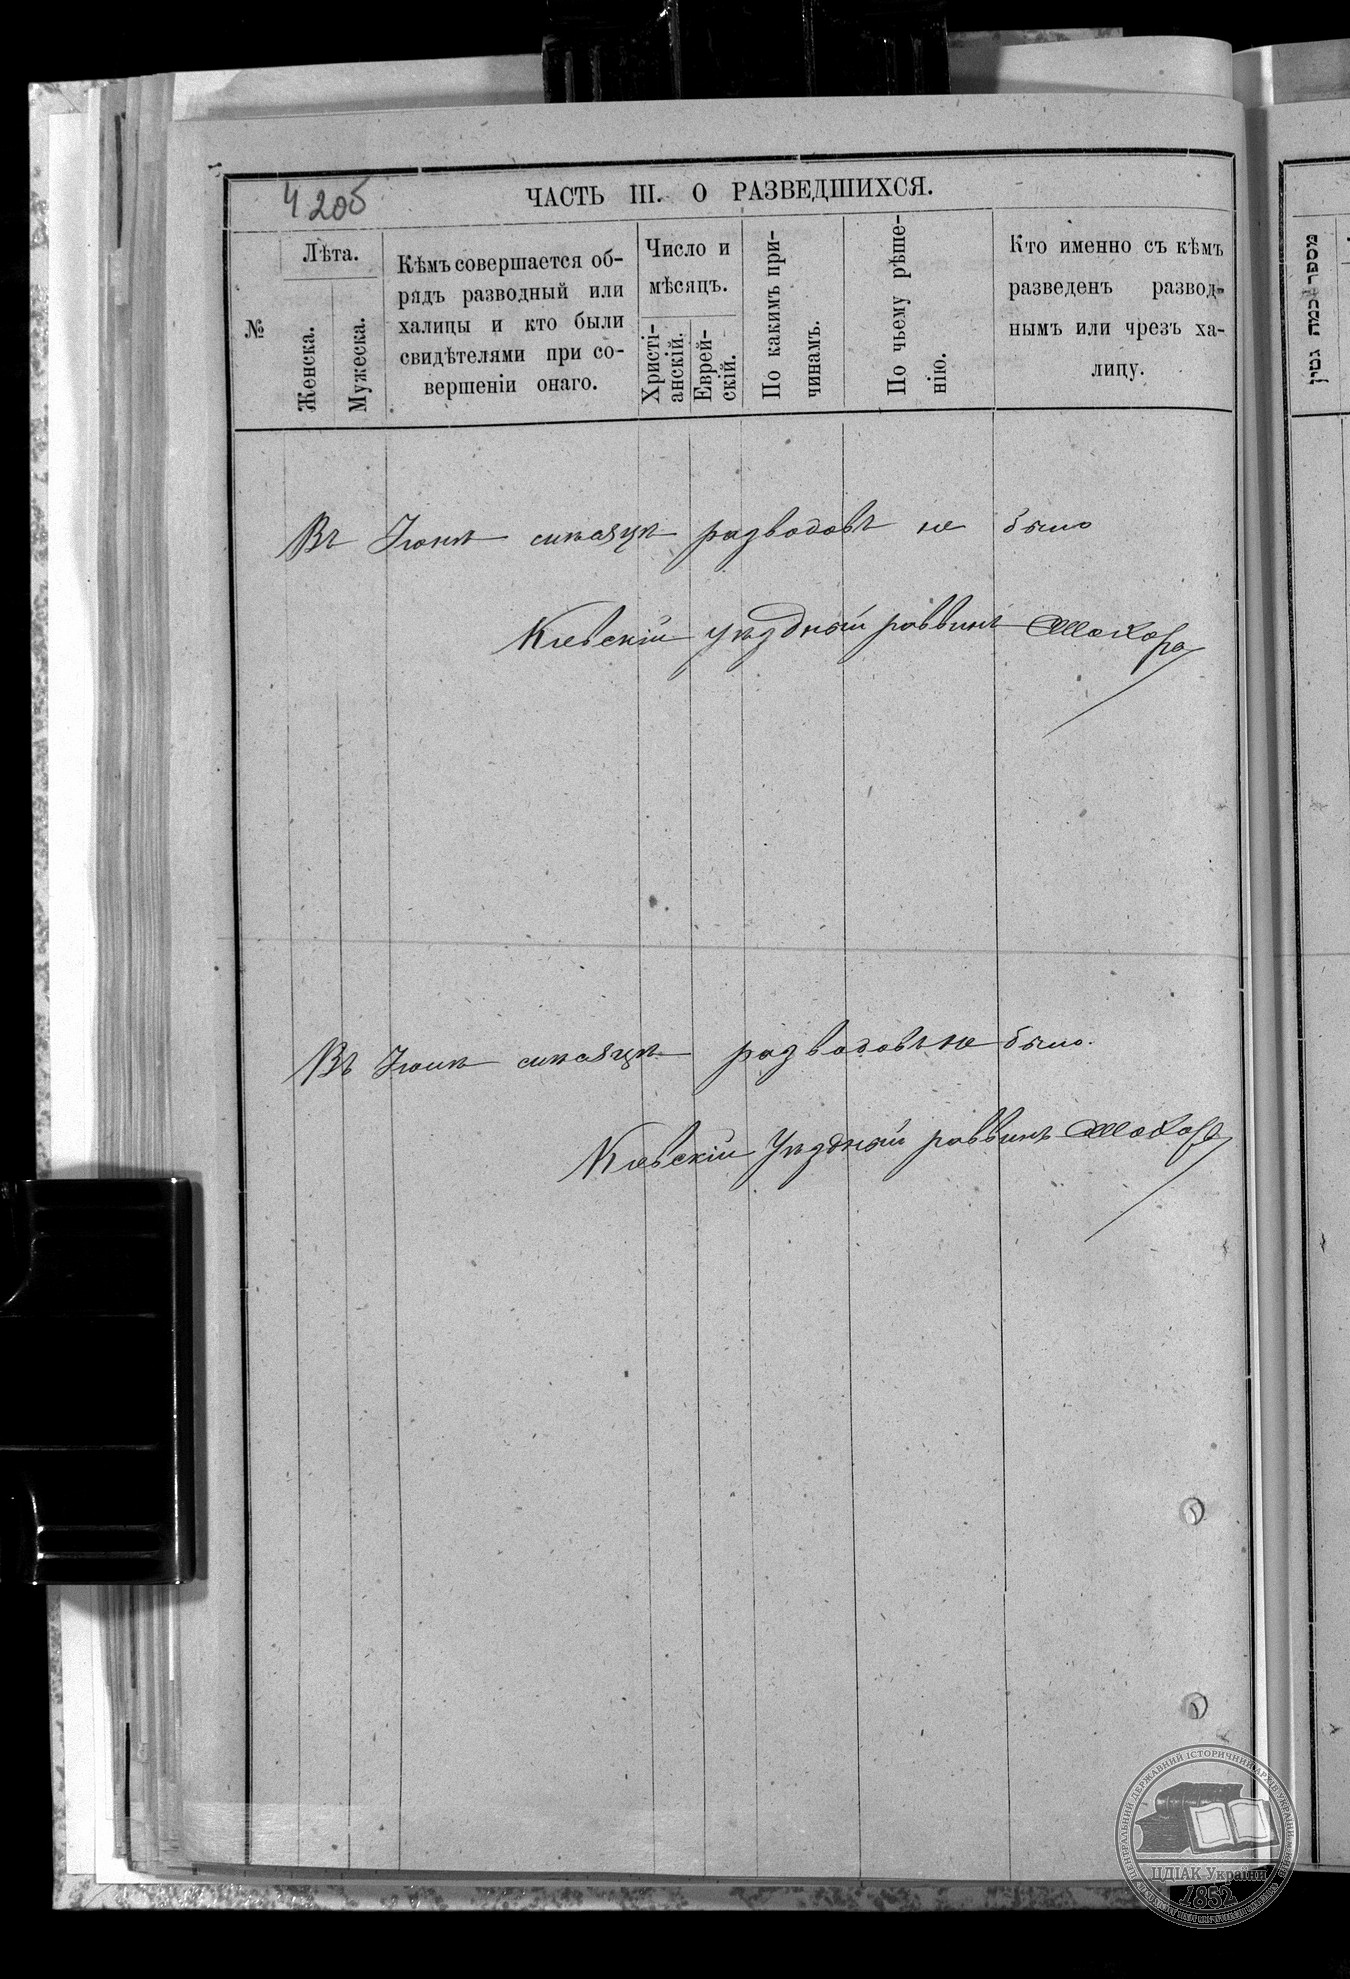 4 20б
ЧАСТЬ III. О РАЗВЕДШИХСЯ.
№
Лѣта.
Женска.
Мужеска.
Кѣмъ совершается об-
рядъ разводный или
халицы и кто были
свидѣтелями при со-
вершеніи онаго.
Число и
мѣсяцъ.
Христі-
анскій.
Еврей-
скій.
По какимъ при-
чинамъ.
По чьему рѣше-
нію.
Кто именно съ кѣмъ
разведенъ развод-
нымъ или чрезъ ха-
лицу.
מספר כמה גטין
Въ Іюнѣ мѣсяцѣ разводовъ не было
Кіевскій уѣздный раввинъ
Въ Іюлѣ мѣсяцѣ разводовъ не было.
Кіевскій Уѣздный раввинъ
ЦДІАК України
1852